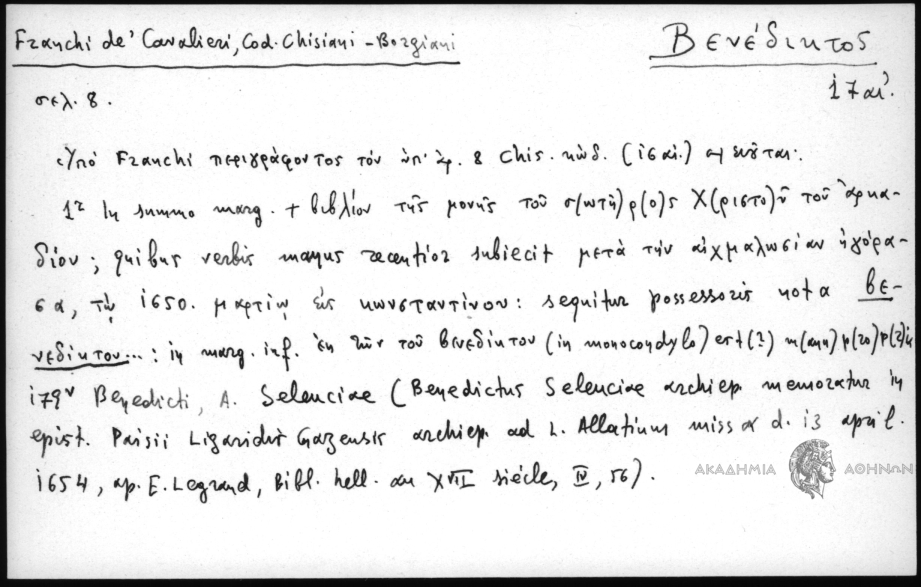 Franchi de' Cavalieri, Cod. Chisiani - Borgiani
Βενέδικτος
17 αἰ.
σελ. 8.
Ὑπό Franchi περιγράφοντος τόν ὑπ' ἀρ. 8 Chis. κώδ. (ις αἰ.) σημειοῦται:
1r In summo marg. + βιβλίον τῆς μονῆς τοῦ σ(ωτῆ)ρ(ο)ς Χ(ριστο)ῦ τοῦ ἀρκα-
δίου; quibus verbis manus recentior subiecit μετὰ τὴν αἰχμαλωσίαν ἠγόρα-
σα, τῷ 1650. μαρτίῳ εἰς κωνσταντίνου: sequitur possessoris nota βε-
νεδίκτου...: in marg. inf. ἐκ τῶν τοῦ βενεδίκτου (in monocondylo) est(?)
179v Benedicti, A. Seleuciae (Benedictus Seleuciae archiep. memoratur in
epist. Paisii Ligaridis Gazensis archiep. ad L. Allatium missa d. 13 april.
1654, ap. E. Legrand, Bibl. hell. au XVII siécle, IV, 56).
ΑΚΑΔΗΜΙΑ ΑΘΗΝΩΝ